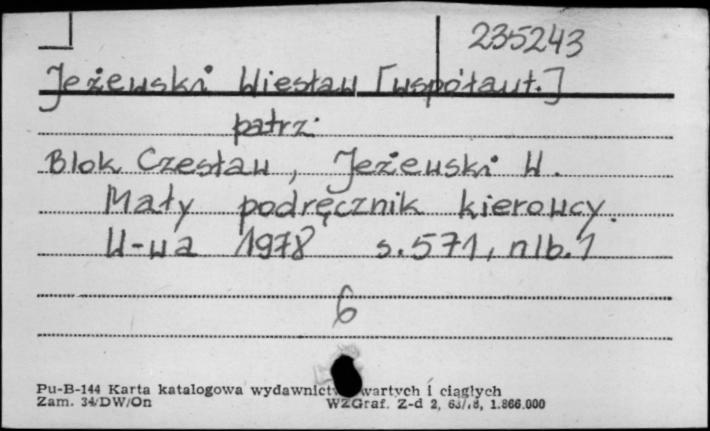 235243
Jeżewski Wiesław [współaut.]
patrz:
Blok Czesław, Jeżewski W.
Mały podręcznik kierowcy.
W-wa 1978 s.571, nlb.1
6
Pu-B-144 Karta katalogowa wydawnictw zwartych i ciągłych
Zam. 34/DW/On WZGraf. Z-d 2, 1.866.000